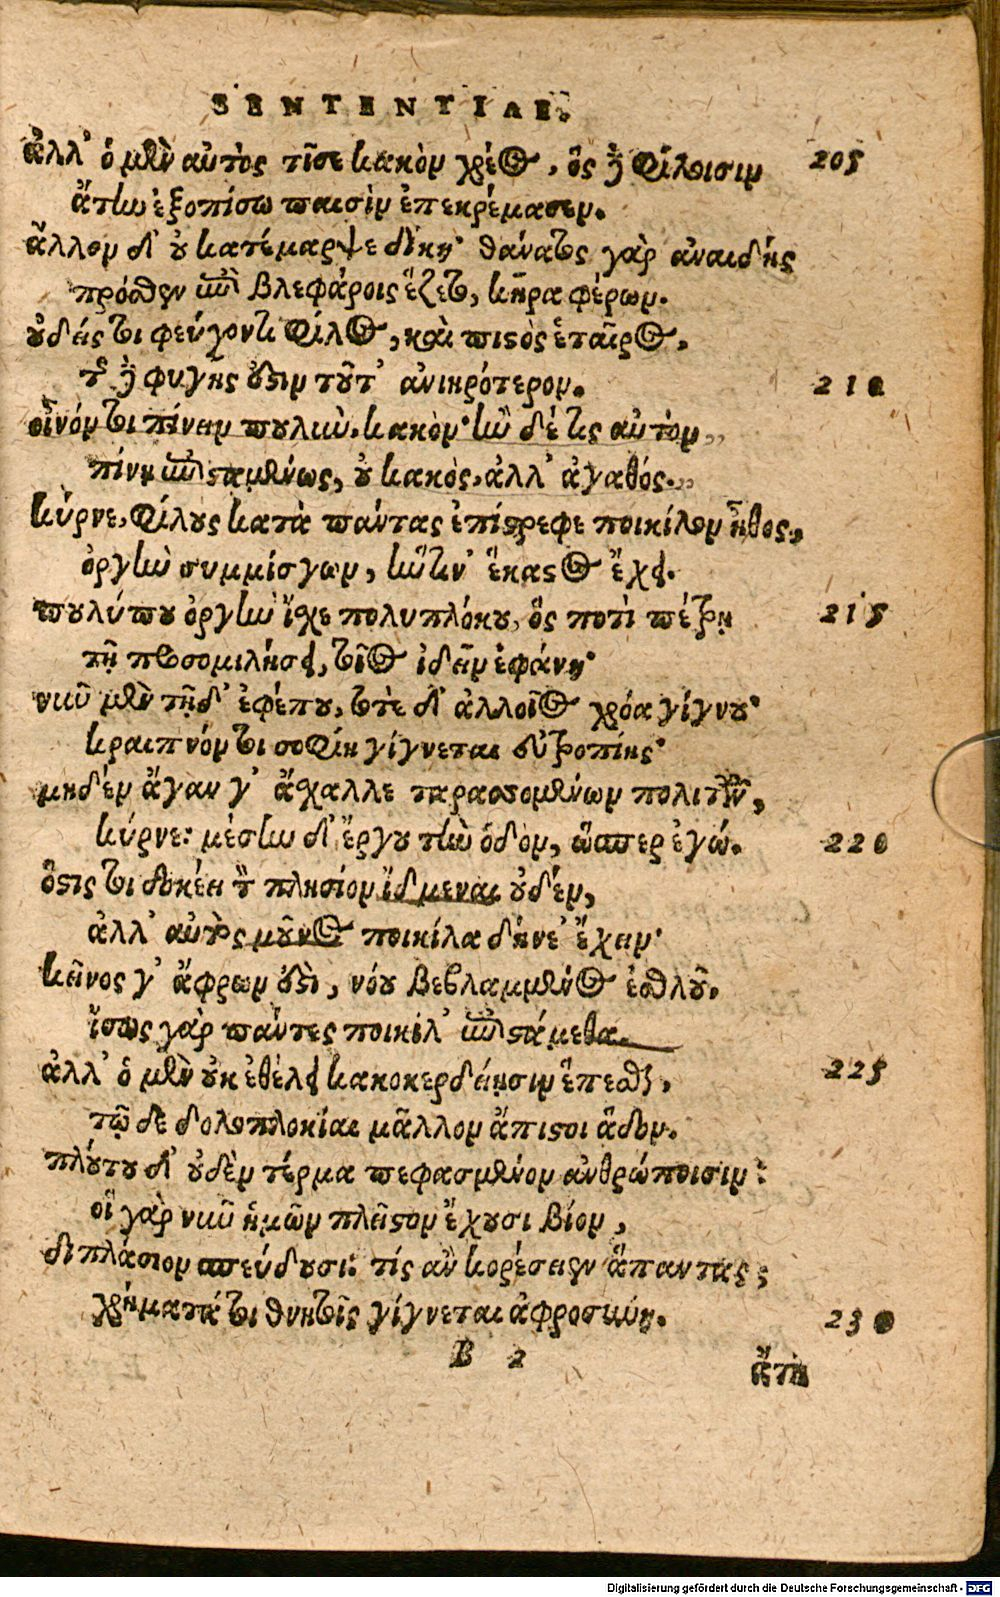 SENTENTIAE.
ἀλλ' ὁ μὲν αὐτὸς τῖσε κακὸν χρέος, ὃς ἢ φίλοισιν 205
ἄτην ἐξοπίσω παισὶν ἐπεκρέμασεν.
ἄλλον δ' οὐ κατέμαρψε δίκη· θάνατος γὰρ ἀναιδής
πρόσθεν ἐπὶ βλεφάροις ἕζετο, κῆρα φέρων.
οὐδείς τοι φεύγοντι φίλος, καὶ πιστὸς ἑταῖρος,
τῆς ἢ φυγῆς ἐστιν τοῦτ' ἀνιηρότερον. 210
οἶνόν τοι πίνειν πουλὺν, κακόν· ἢν δέ τις αὐτόν
πίνῃ ἐπισταμένως, οὐ κακὸς, ἀλλ' ἀγαθός.
κύρνε, φίλους κατὰ πάντας ἐπίστρεφε ποικίλον ἦθος,
ὀργὴν συμμίσγων, ἥντιν' ἕκαστος ἔχει.
πουλύπου ὀργὴν ἴσχε πολυπλόκου, ὃς ποτὶ πέτρῃ 215
τῇ προσομιλήσει, τοῖος ἰδεῖν ἐφάνη·
νῦν μὲν τῇδ' ἐφέπου, τοτὲ δ' ἀλλοῖος χρόα γίγνου·
κραιπνόν τοι σοφίη γίγνεται εὐτροπίης·
μηδὲν ἄγαν γ' ἄσχαλλε ταρασσομένων πολιτῶν,
κύρνε: μέσην δ' ἔργου τὴν ὁδὸν, ὥσπερ ἐγώ. 220
ὅστις τοι δοκέει τὸν πλησίον ἴδμεναι οὐδέν,
ἀλλ' αὐτὸς μοῦνος ποικίλα δήνε' ἔχειν·
κεῖνος γ' ἄφρων ἐστὶ, νόου βεβλαμμένος ἐσθλοῦ.
ἴσως γὰρ πάντες ποικίλ' ἐπιστάμεθα.
ἀλλ' ὁ μὲν οὐκ ἐθέλει κακοκερδείῃσιν ἕπεσθαι, 225
τῷ δὲ δολοπλοκίαι μᾶλλον ἄπιστοι ἅδον.
πλούτου δ' οὐδὲν τέρμα πεφασμένον ἀνθρώποισιν:
οἳ γὰρ νῦν ἡμῶν πλεῖστον ἔχουσι βίον,
διπλάσιον σπεύδουσι: τίς ἂν κορέσειεν ἅπαντας;
χρήματά τοι θνητοῖς γίγνεται ἀφροσύνη. 230
B 2
ἄτη
Digitalisierung gefördert durch die Deutsche Forschungsgemeinschaft - DFG